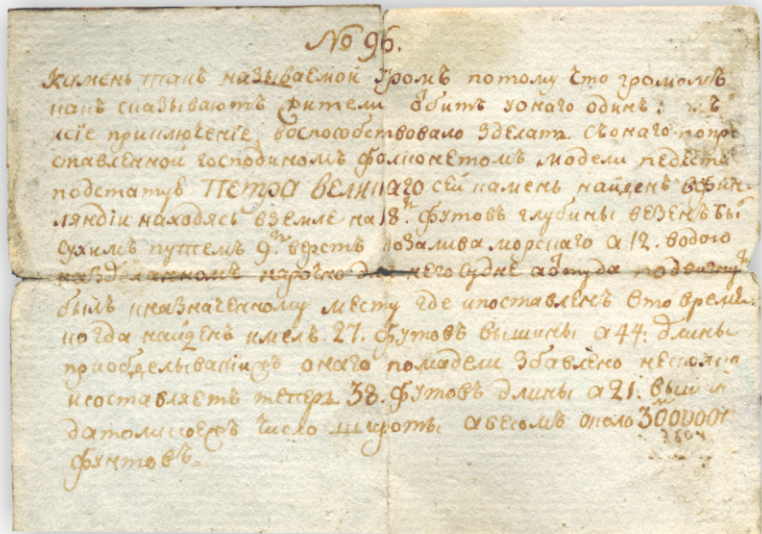 No 96.
Камень такъ называемой громъ потому что громомъ
какъ сказываютъ жители отбитъ уонаго одинъ:
исіе приключеніе, воспособствовало зделать съонаго
ставленной господиномъ фолконетомъ модели
подстатуѣ ПЕТРА ВЕЛИКАГО сей камень найденъ вфин-
ляндіи находясь вземле на 18ти футовъ глубины везенъ
сухимъ путемъ 9ть верстъ дозалива морскаго а 12. водою
наздѣланномъ нарочно для него суднѣ аоттуда
былъ кназначенному месту где ипоставленъ вто время
когда найденъ имелъ. 27. футовъ вышины а 44. длины
приобделываніи онаго помадели збавлено несколко
исоставляетъ теперь 38. футовъ длины а 21. вышины
датоликоежъ число широты авесомъ около 3000000
фунтовъ.